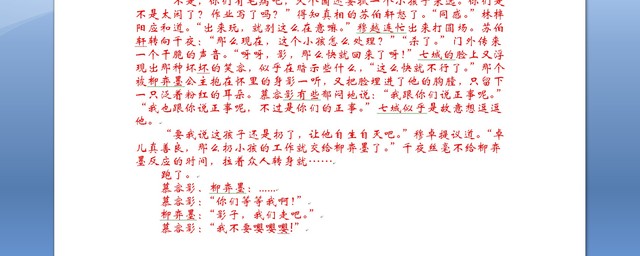 不是，你们有毛病吧，大个国还要抓一个小孩子亲选。你们是
不是太闲了？作业写了吗？”得知真相的苏伯轩怒了。“同感。”林梓
阳应和道。“出来玩，就别这么在意嘛。”穆越连忙出来打圆场。苏伯
轩转向千夜：“那么现在，这个小孩怎么处理？”“杀了。”门外传来
一个干脆的声音。“呀呀，影，那么快就回来了呀！”七域的脸上又浮
现出那种坏坏的笑容，似乎在暗示些什么，“这么快就不行了。”那个
被柳弈墨公主抱在怀里的身影一听，又把脸埋进了他的胸膛，只留下
一只泛着粉红的耳朵。慕容影有些郁闷地说：“我跟你们说正事呢。”
“我也跟你说正事呢，不过是你们的正事。”七域似乎是故意想逗逗
他。
“要我说这孩子还是扔了，让他自生自灭吧。”穆卓提议道。“卓
儿真善良，那么扔小孩的工作就交给柳弈墨了。”千夜丝毫不给柳弈
墨反应的时间，拉着众人转身就……
跑了。
慕容影、柳弈墨：……
慕容影：“你们等等我啊！”
柳弈墨：“影子，我们走吧。”
慕容影：“我不要嘤嘤嘤！”